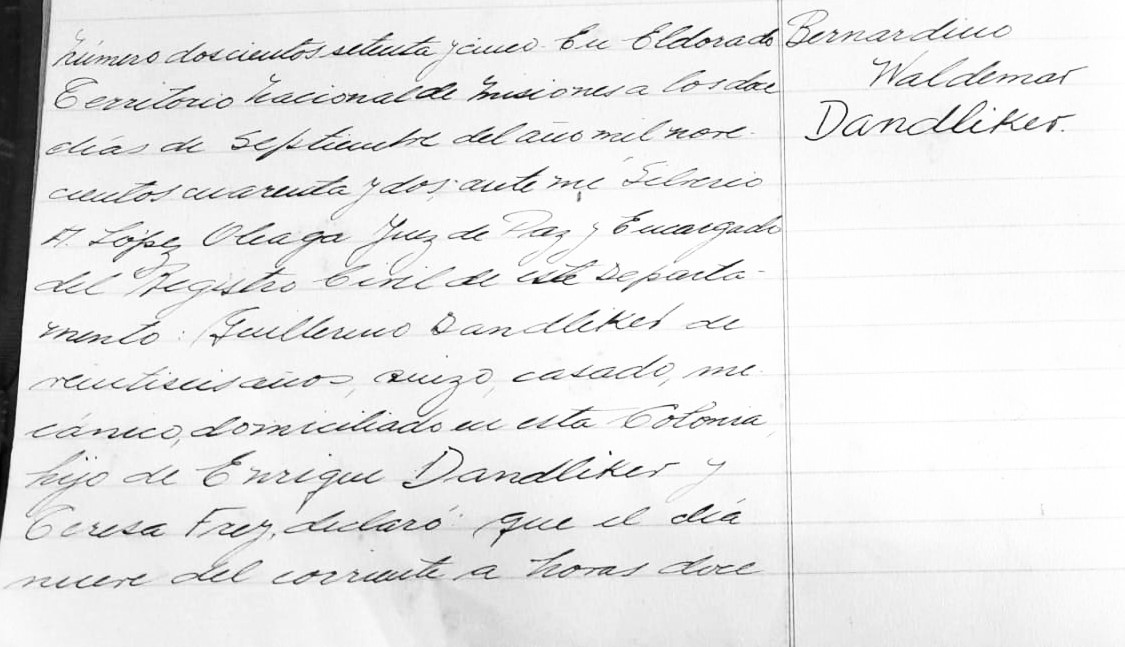 Número doscientos setenta y cinco. En Eldorado
Territorio Nacional de Misiones a los doce
días de Septiembre del año mil nove-
cientos cuarenta y dos, ante mí Silverio
A. López Oleaga Juez de Paz y Encargado
del Registro Civil de este Departa-
mento: Guillermo Dandliker de
veintiseis años, suizo, casado, me-
cánico, domiciliado en esta Colonia,
hijo de Enrique Dandliker y
Teresa Frey, declaró: Que el día
nueve del corriente a horas doce
Bernardino
Waldemar
Dandliker.